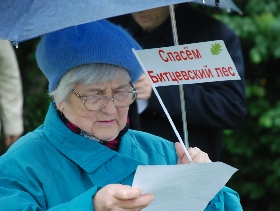 Спасём
Битцевский лес